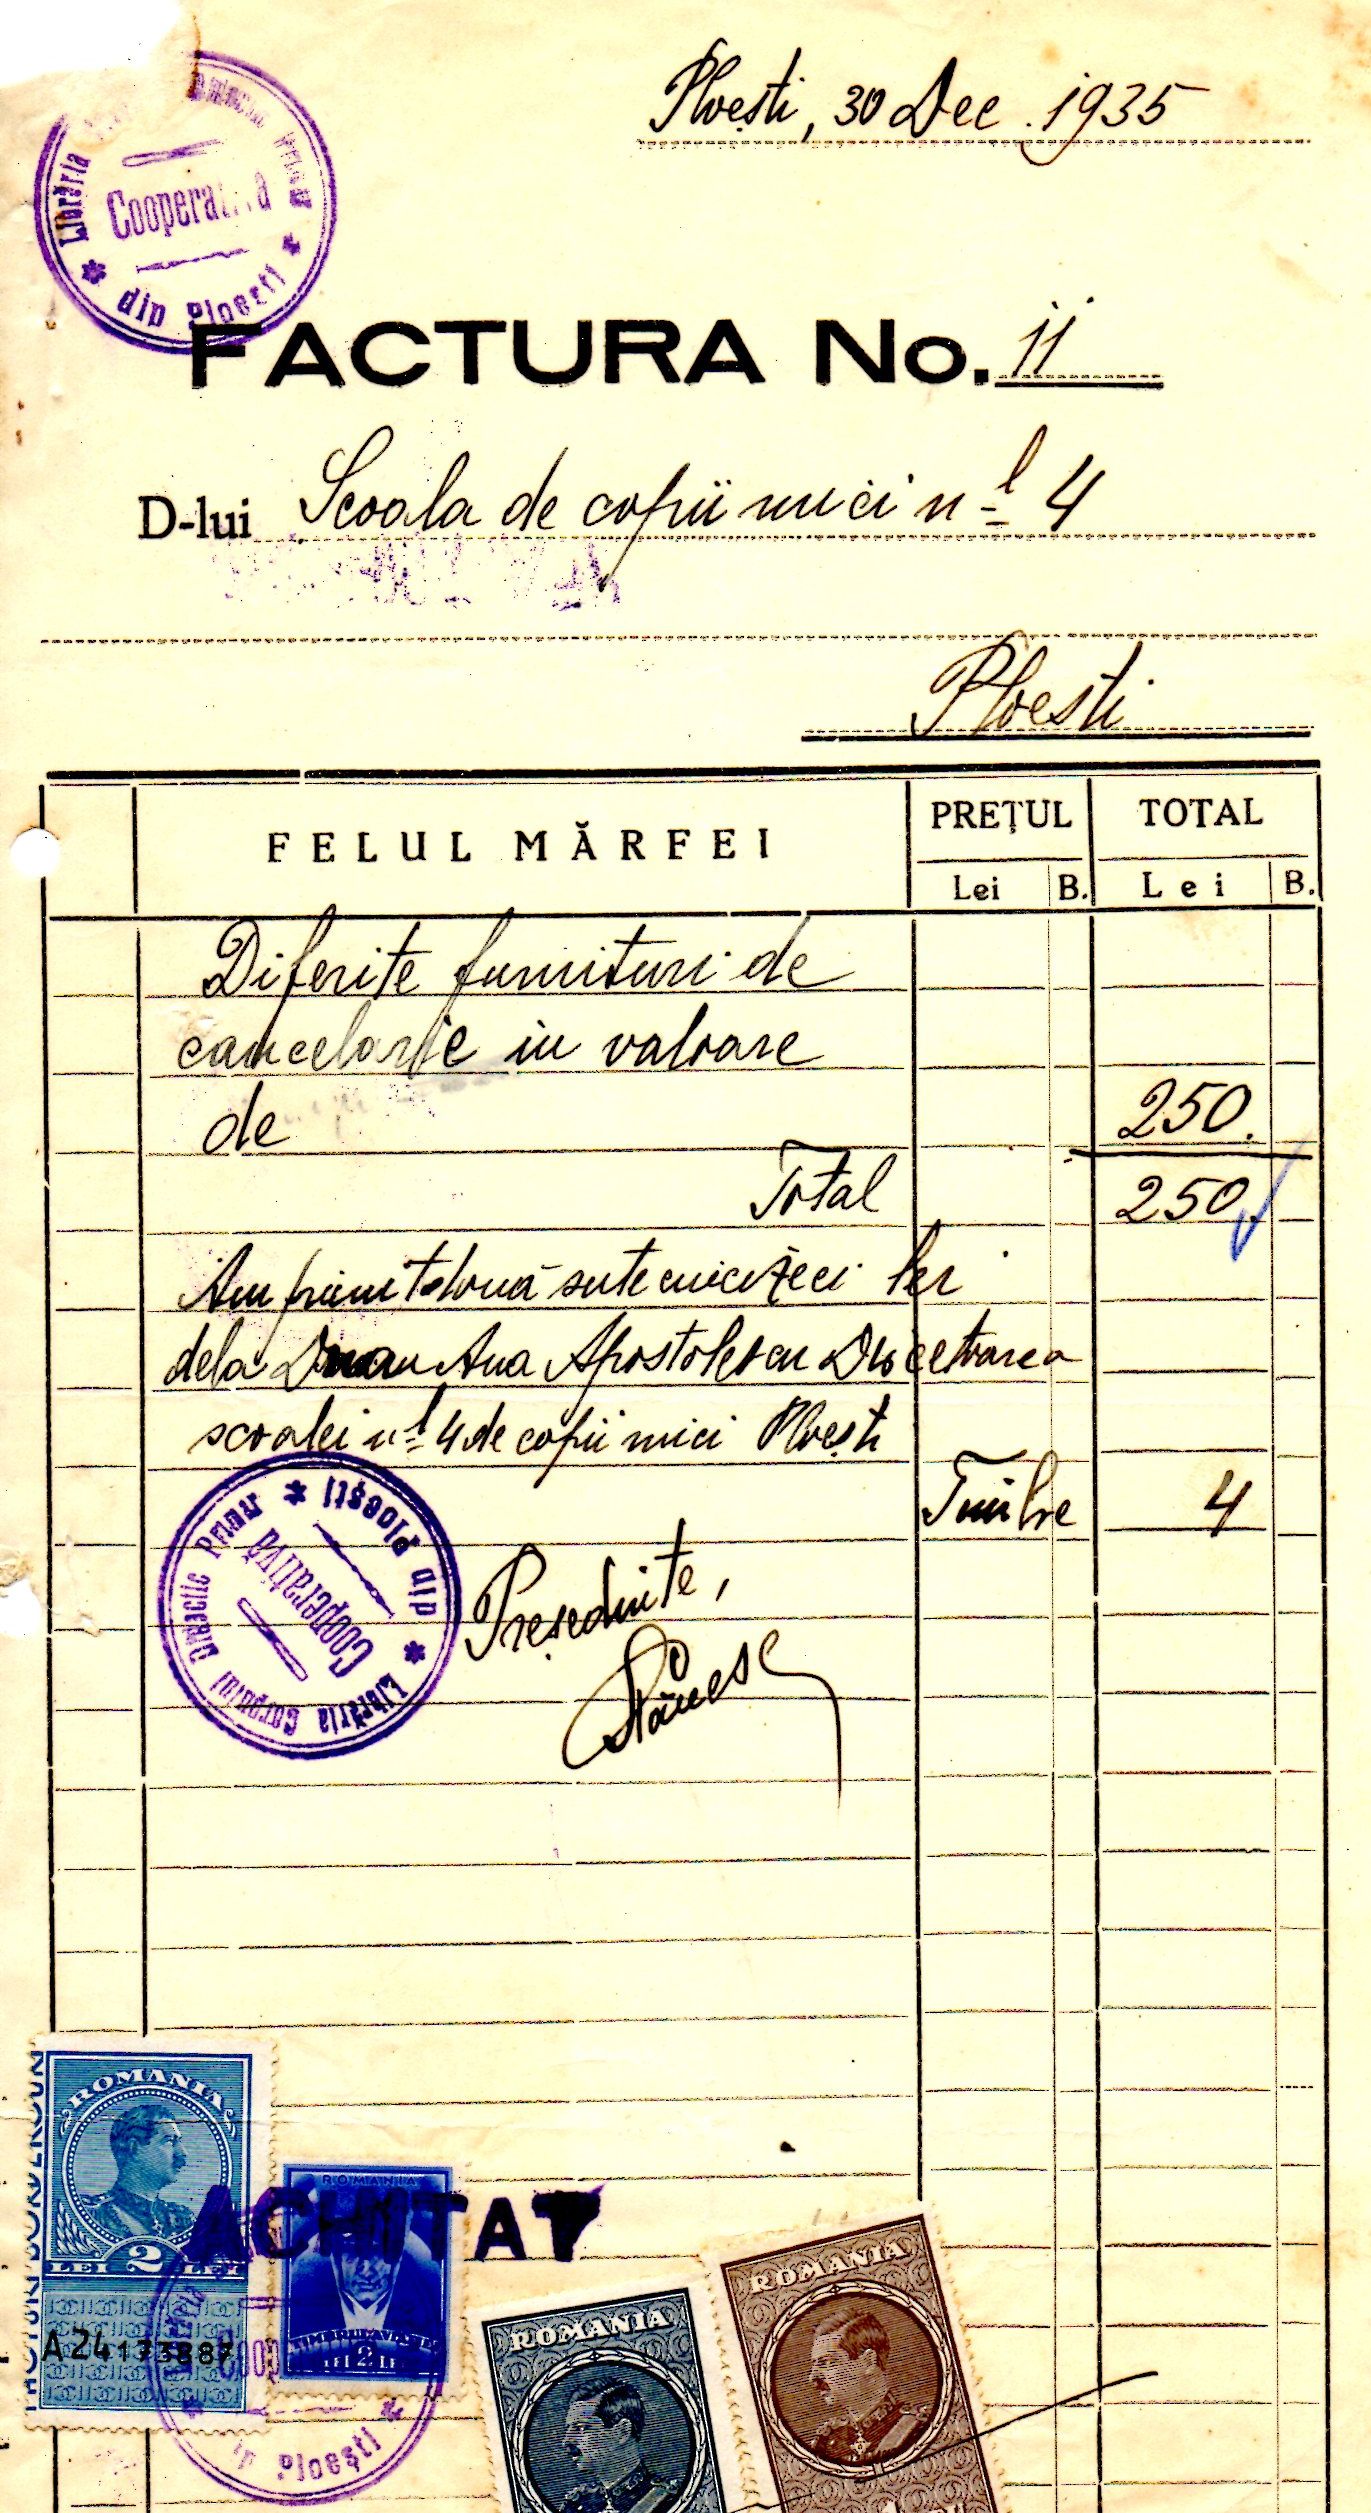 Librăria
Cooperativa
din Ploeşti
Ploeşti, 30 Dec. 1935
FACTURA No. 11
D-lui Scoala de copii mici n-l 4
Ploesti
FELUL MĂRFEI PREŢUL TOTAL
Lei B. Lei B.
Diferite furnituri de
cancelarie in valoare
de 250.
Total 250.
Am primit două sute cincizeci lei
dela Dna Ana Apostolescu Directoarea
scoalei n-l 4 de copii mici Ploeşti
Timbre 4
Librăria Corpului Didactic Primar
Cooperativă
din Ploeşti
Preşedinte,
ROMANIA
LEI 2 LEI
A24173887
ROMANIA
2
ACHITAT
din Ploeşti
ROMANIA
ROMANIA